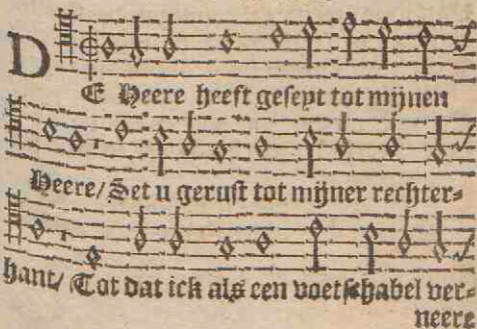 DE Heere heeft geseyt tot mijnen
Heere/ Set u gerust tot mijner rechter=
hant/ Tot dat ick als een voetschabel ver=
neere